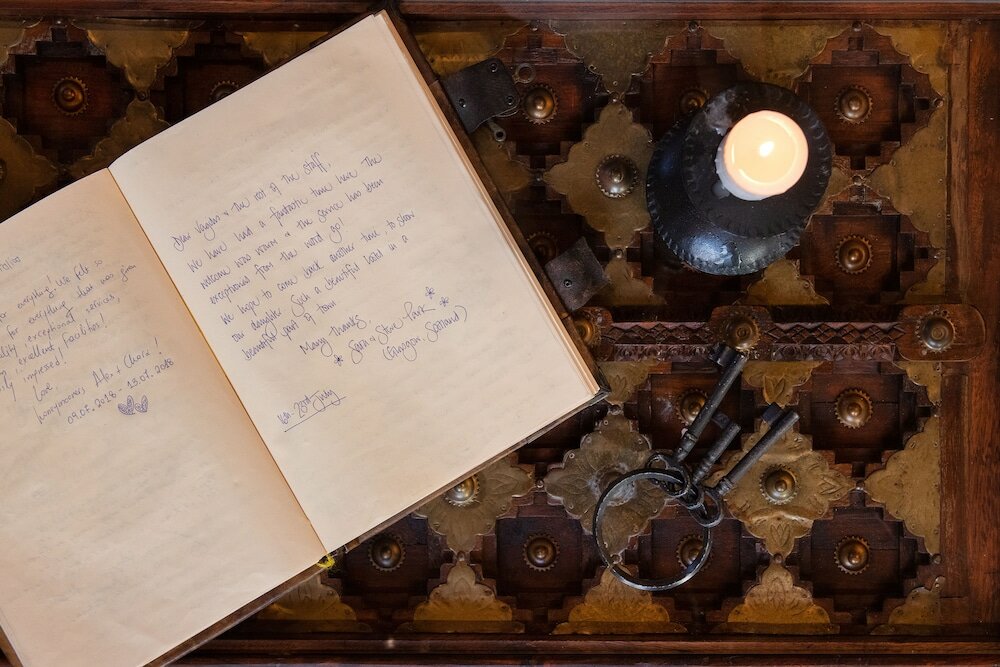 everything! We felt so
for everything that was from
exceptional services,
excellent facilities!
impressed!
Love,
honeymooners Alex + Claire!
09.07.2018 - 13.07.2018
Dear Vaggelis & the rest of the staff,
We have had a fantastic time here. The
welcome was warm & the service has been
exceptional from the word go!
We hope to come back another time to show
our daughter such a beautiful hotel in a
beautiful part of town.
Many thanks,
Sara & Steve Park
(Glasgow, Scotland)
16th - 23rd July